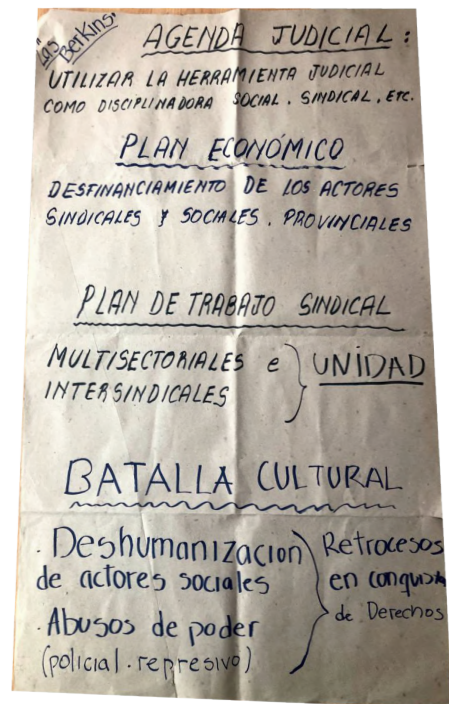 "Las Berkins"
AGENDA JUDICIAL:
UTILIZAR LA HERRAMIENTA JUDICIAL
COMO DISCIPLINADORA SOCIAL. SINDICAL, ETC.
PLAN ECONÓMICO
DESFINANCIAMIENTO DE LOS ACTORES
SINDICALES Y SOCIALES. PROVINCIALES
PLAN DE TRABAJO SINDICAL
MULTISECTORIALES e
INTERSINDICALES
UNIDAD
BATALLA CULTURAL
. Deshumanizacion
de actores sociales
. Abusos de poder
(policial. represivo)
Retrocesos
en conquista
de Derechos